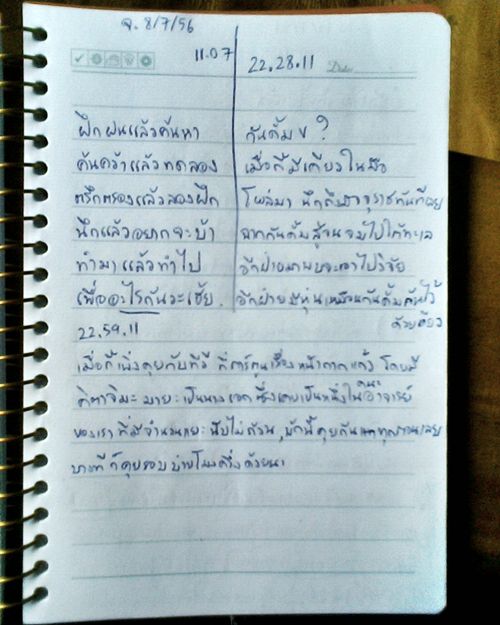 จ. 8/7/56
11.07
ฝึกฝนแล้วค้นหา
ค้นคว้าแล้วทดลอง
ตรึกตรองแล้วลองฝึก
นึกแล้วอยากจะบ้า
ทำมาแล้วทำไป
เพื่ออะไรกันวะเฮ้ย.
22.28.11
Date
กันดั้ม V ?
เมื่อกี้มีเคียวในมือ
โผล่มา นึกถึง ทันทีเลย
กันดั้มสู้จน ไปใต้ทะเล
อีกฝ่าย จะเอาไปวิจัย
อีกฝ่ายมีหุ่นเหมือนกันดั้ม ไว้
ด้วยเคียว
22.59.11
เมื่อกี้เพิ่งคุยกับทีวี ที่การ์ตูนเรื่องหน้ากากแก้ว โดยมี
คิตาจิมะ มายะ เป็นนางเอก ซึ่งเคยเป็นหนึ่งใน อาจารย์
ของเรา ที่มีจำนวนเยอะ นับไม่ถ้วน, พักนี้คุยกัน เลย
บางที ก็คุยรอบบ่ายโมงครึ่งด้วยนะ